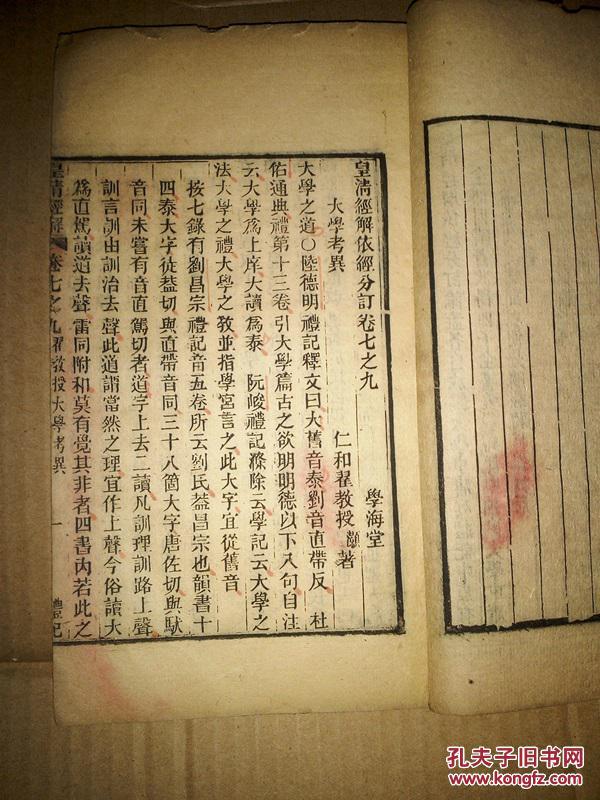 皇清經解依經分訂卷七之九
學海堂
大學考異
仁和翟教授灝著
大學之道〇陸德明禮記釋文曰大舊音泰劉音直帶反 杜
佑通典禮第十三卷引大學篇古之欲明明德以下八句自注
云大學爲上庠大讀爲泰 阮峻禮記滌除云學記云大學之
法大學之禮大學之敎並指學宮言之此大字宜從舊音
按七錄有劉昌宗禮記音五卷所云劉氏葢昌宗也韻書十
四泰大字徒葢切與直帶音同三十八箇大字唐佐切與馱
音同未嘗有音直駕切者道字上去二讀凡訓理訓路上聲
訓言訓由訓治去聲此道謂當然之理宜作上聲今俗讀大
爲直駕讀道去聲雷同附和莫有覺其非者四書內若此之
皇淸經解
卷七之九翟教授大學考異
一
禮記
孔夫子旧书网
www.kongfz.com